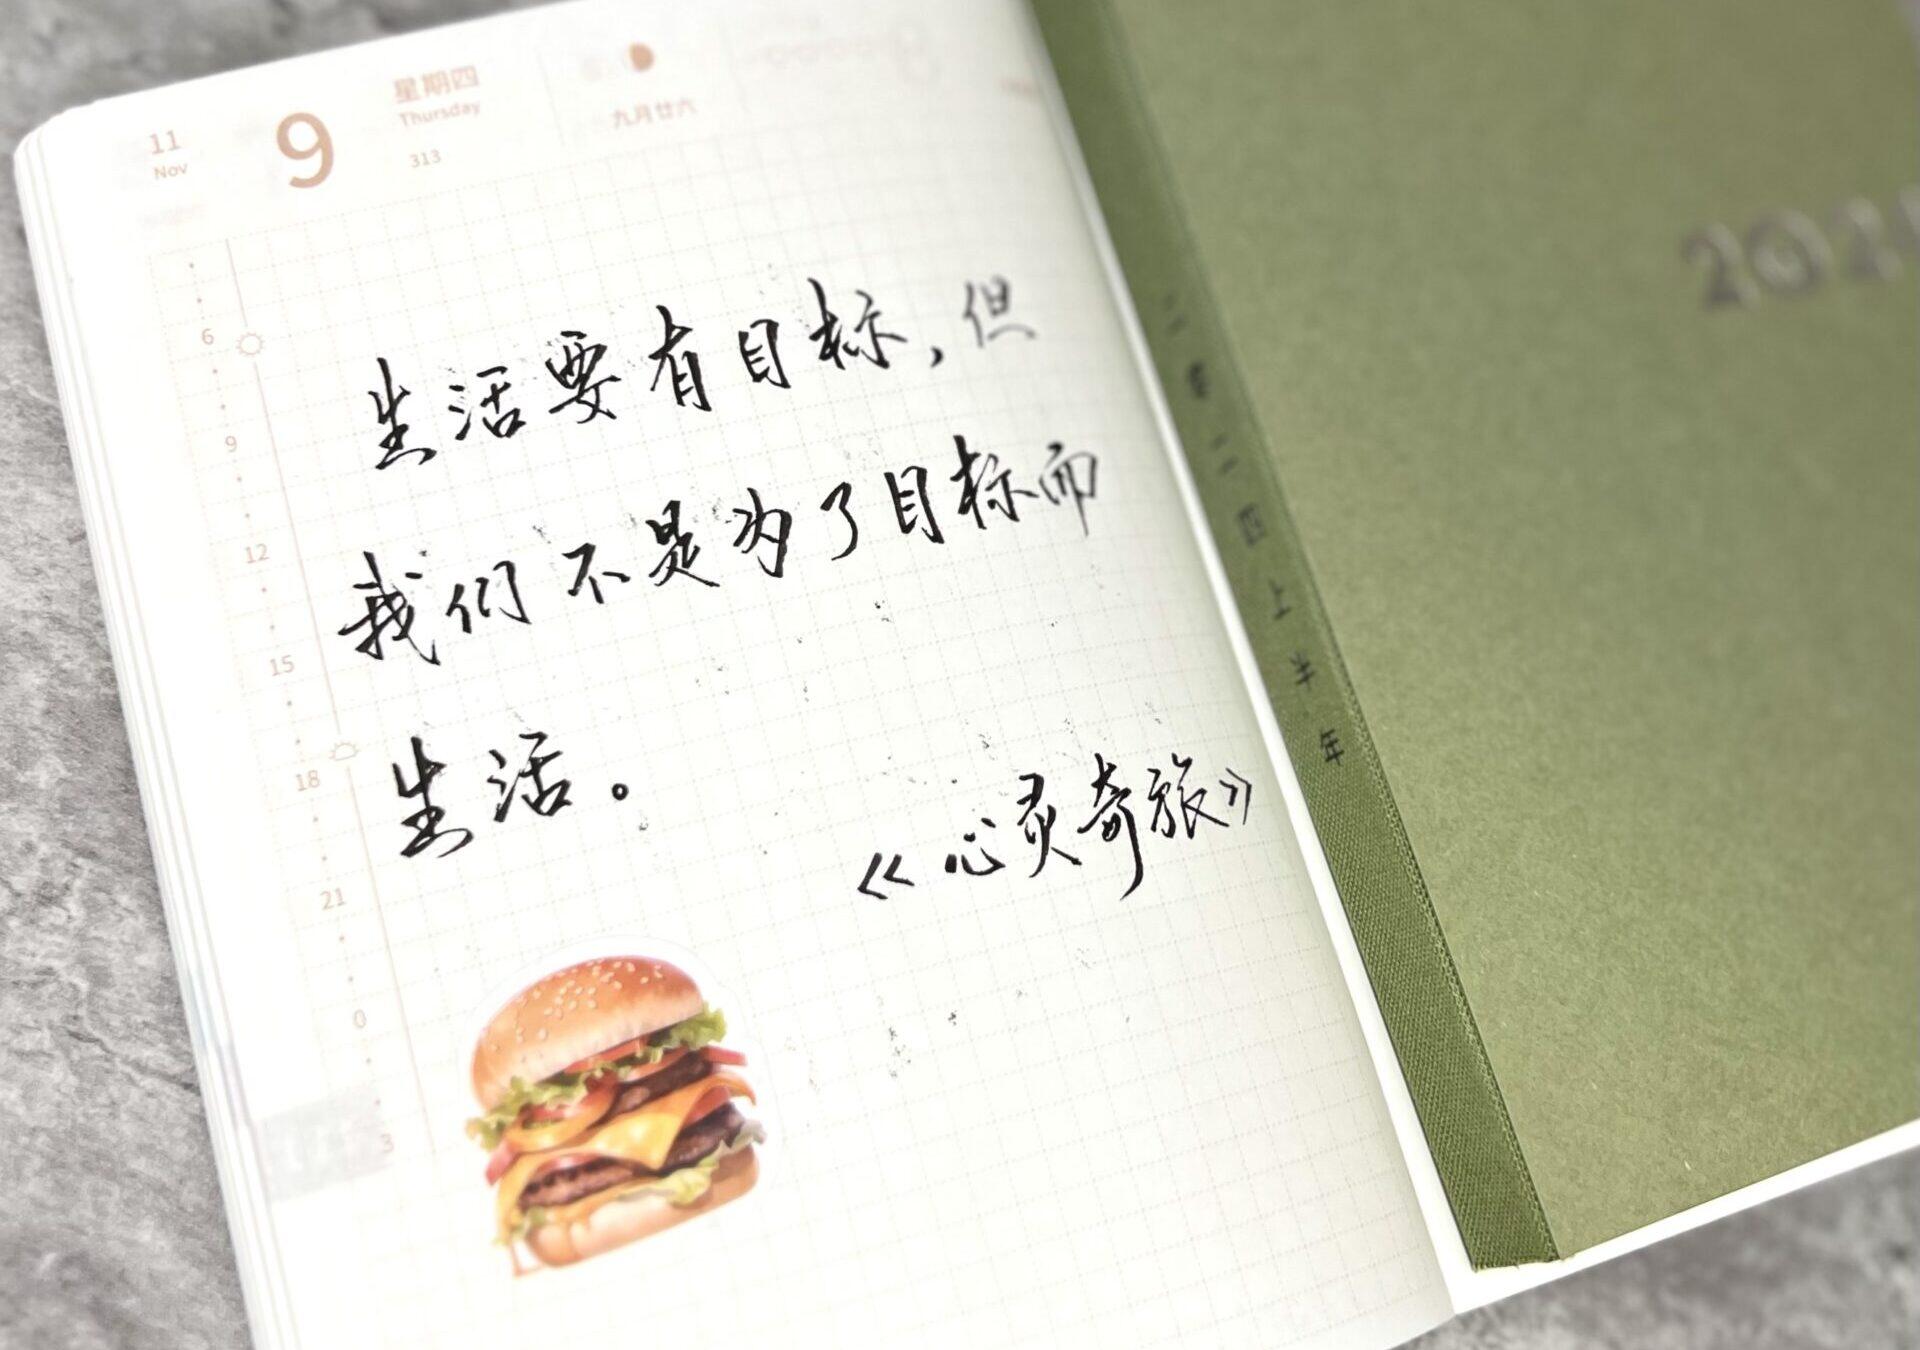 11
Nov
9
星期四
Thursday
313
九月廿六
6
9
12
15
18
21
0
3
生活要有目标，但
我们不是为了目标而
生活。
《心灵奇旅》
二零二四上半年